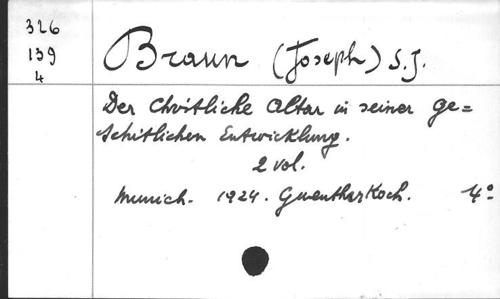 326
139
4
Braun (Joseph) S.J.
Der Christliche Altar in seiner ge=
schitlichen Entwicklung.
2 vol.
Munich. 1924. Guenther Koch. 4°